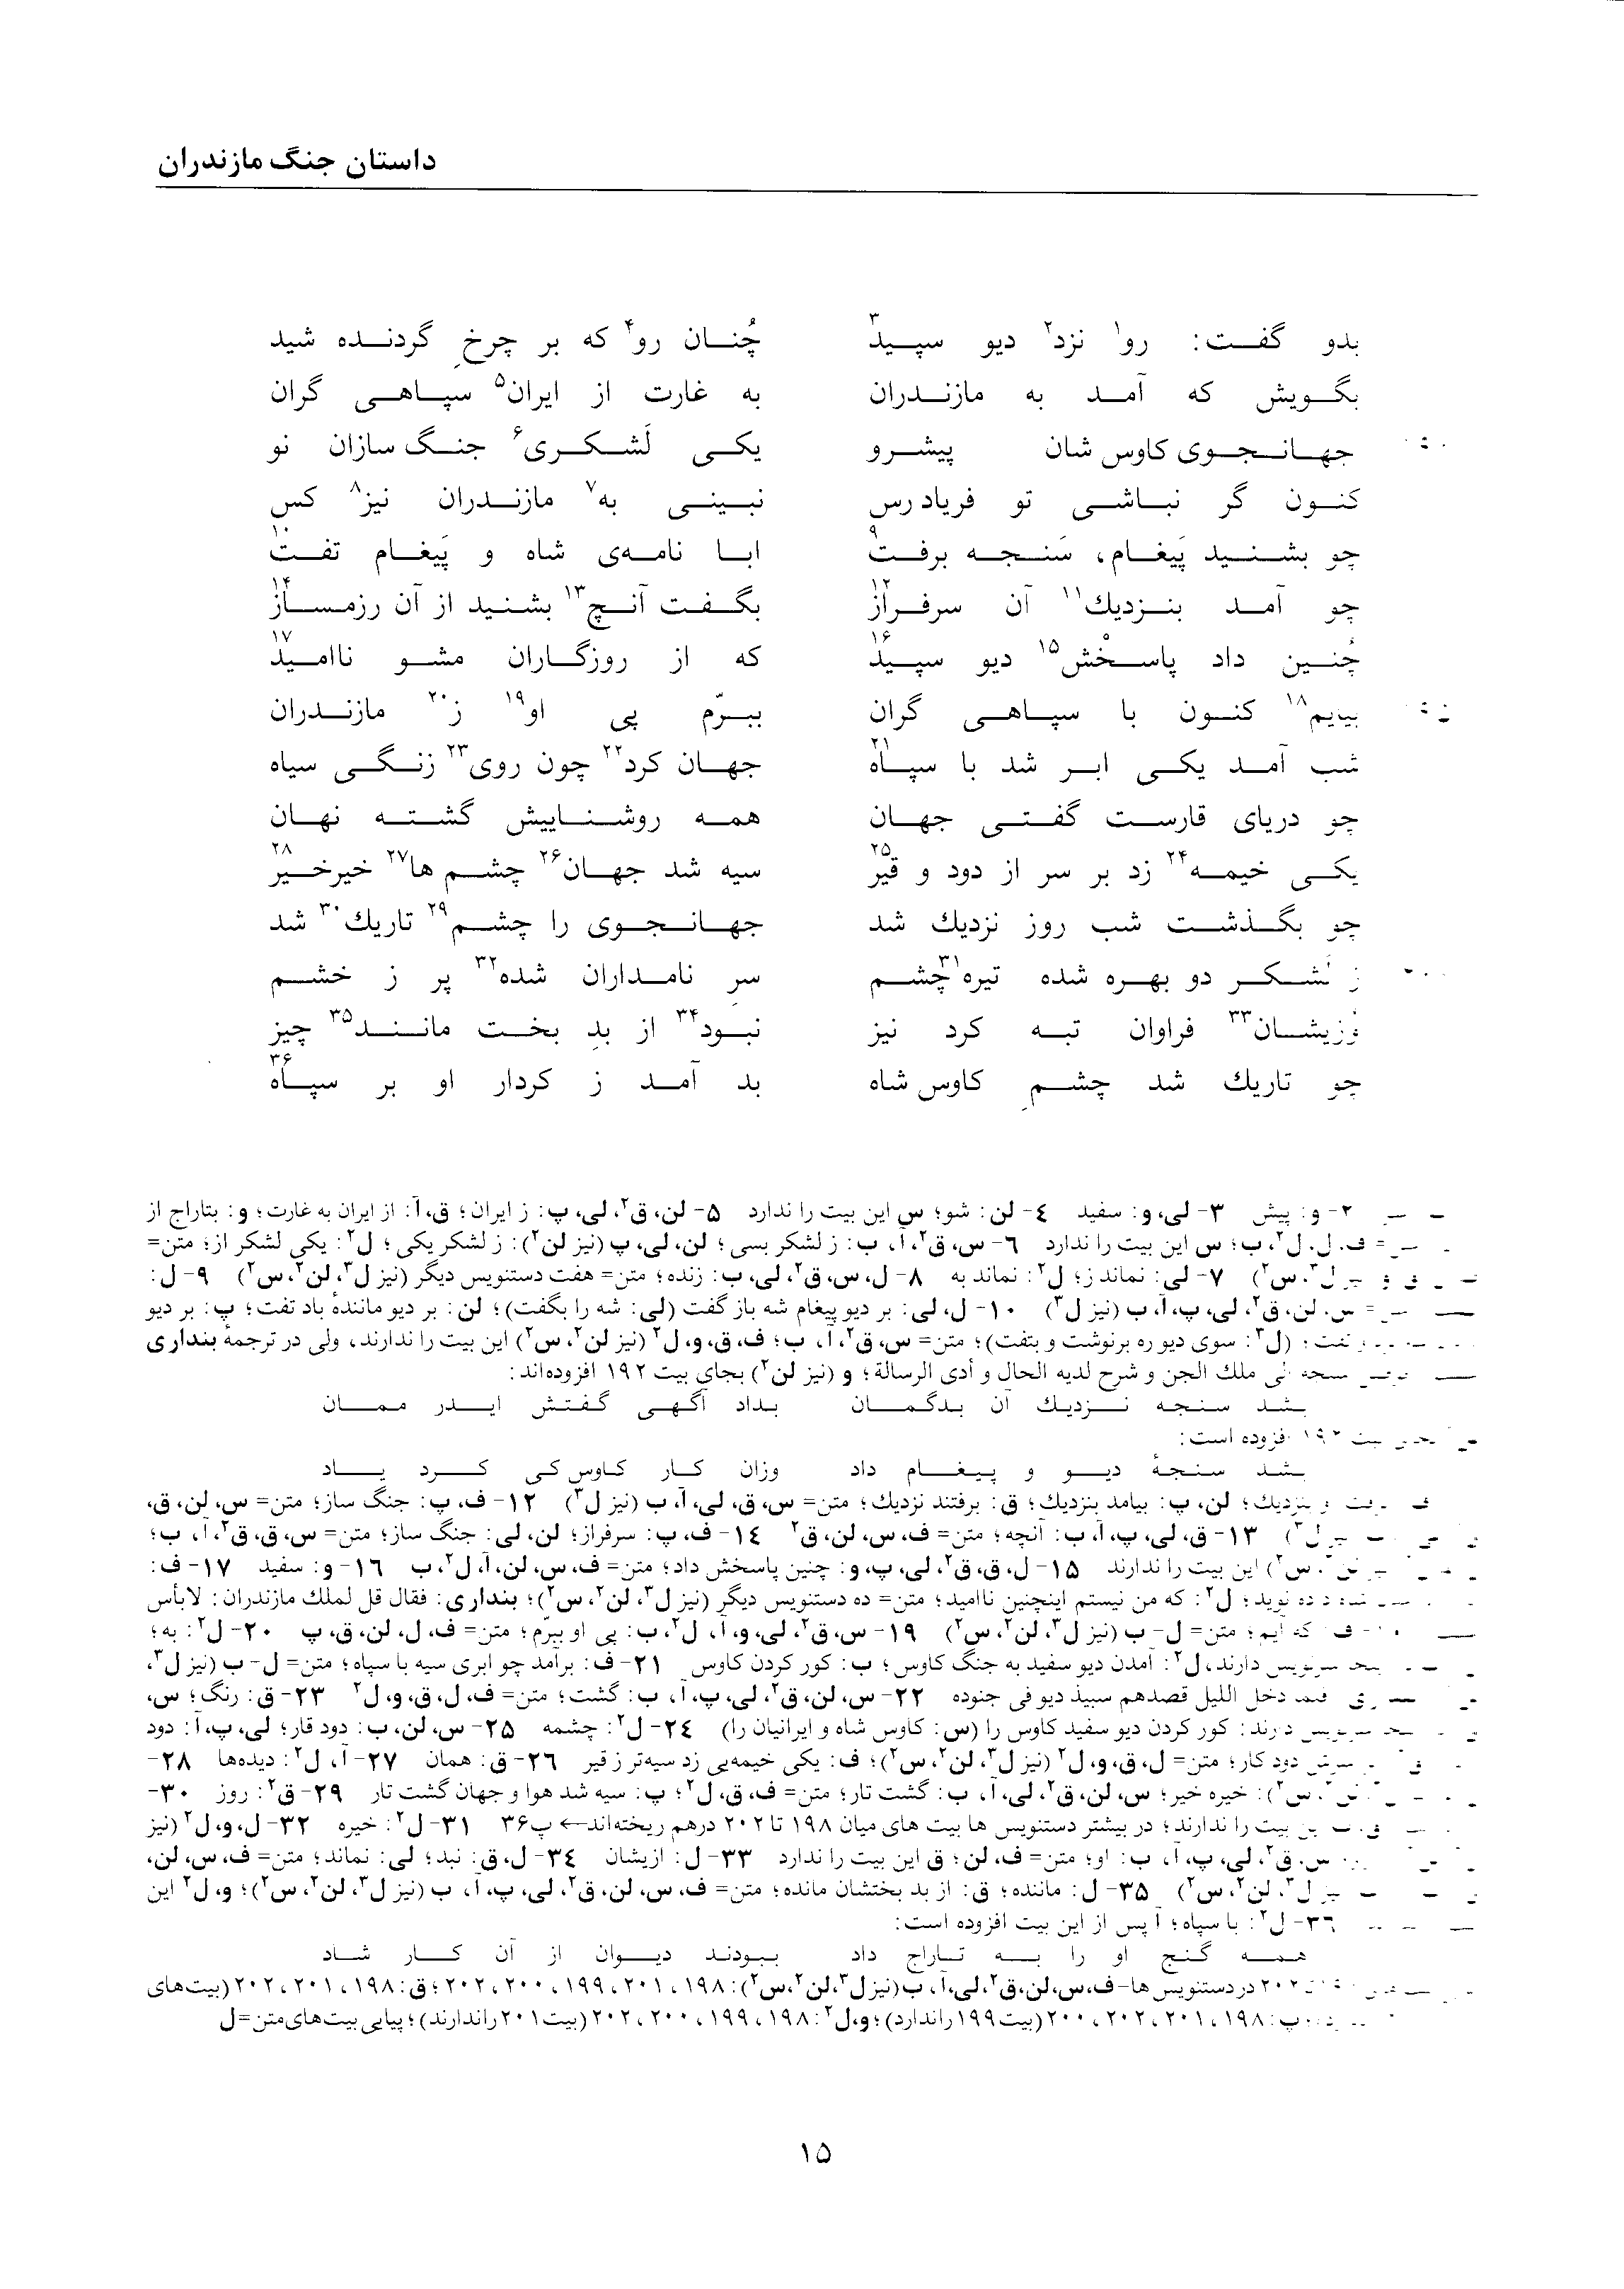 داستان جنگ مازندران
بدو گفت: رو۱ نزد۲ دیو سپید۳ چُنان رو۴ که بر چرخِ گردنده شید
بگویش که آمد به مازندران به غارت از ایران۵ سپاهی گران
جهانجوی کاوس شان پیشرو یکی لَشکری۶ جنگ سازان نو
کنون گر نباشی تو فریادرس نبینی به۷ مازندران نیز۸ کس
چو بشنید پَیغام، سَنجه برفت۹ ابا نامه‌ی شاه و پَیغام تفت۱۰
چو آمد بنزدیك۱۱ آن سرفراز۱۲ بگفت آنچ۱۳ بشنید از آن رزمساز۱۴
چُنین داد پاسخْش۱۵ دیو سپید۱۶ که از روزگاران مشو ناامید۱۷
بیایم۱۸ کنون با سپاهی گران ببرّم پی او۱۹ ز۲۰ مازندران
شب آمد یکی ابر شد با سپاه۲۱ جهان کرد۲۲ چون روی۲۳ زنگی سیاه
چو دریای قارست گفتی جهان همه روشناییش گشته نهان
یکی خیمه۲۴ زد بر سر از دود و قیر۲۵ سیه شد جهان۲۶ چشم ها۲۷ خیرخیر۲۸
چو بگذشت شب روز نزدیك شد جهانجوی را چشم۲۹ تاریك۳۰ شد
ز لَشکر دو بهره شده تیره چشم۳۱ سرِ نامداران شده۳۲ پر ز خشم
وُزیشان۳۳ فراوان تبه کرد نیز نبود۳۴ از بدِ بخت مانند۳۵ چیز
چو تاریك شد چشمِ کاوس شاه بد آمد ز کردار او بر سپاه۳۶
۲- و: پیش ۳- لی، و: سفید ۴- لن: شو؛ س این بیت را ندارد ۵- لن، ق۲، لی، پ: ز ایران؛ ق، آ: از ایران به غارت؛ و: بتاراج از
ف، ل، ل۲، ب؛ س این بیت را ندارد ۶- س، ق۲، آ، ب: ز لشکر بسی؛ لن، لی، پ (نیز لن۲): ز لشکر یکی؛ ل۲: یکی لشکر از؛ متن=
ل۳، س۲) ۷- لی: نماند ز؛ ل۲: نماند به ۸- ل، س، ق۲، لی، ب: زنده؛ متن= هفت دستنویس دیگر (نیز ل۳، لن۲، س۲) ۹- ل:
س، لن، ق۲، لی، پ، آ، ب (نیز ل۳) ۱۰- ل، لی: بر دیو پیغام شه باز گفت (لی: شه را بگفت)؛ لن: بر دیو مانندهٔ باد تفت؛ پ: بر دیو
تفت؛ (ل۳: سوی دیو ره برنوشت و بتفت)؛ متن= س، ق۲، آ، ب؛ ف، ق، و، ل۲ (نیز لن۲، س۲) این بیت را ندارند، ولی در ترجمهٔ بنداری
ملك الجن و شرح لدیه الحال و أدی الرسالة؛ و (نیز لن۲) بجای بیت ۱۹۲ افزوده‌اند:
بشد سنجه نزدیك آن بدگمان بداد آگهی گفتش ایدر ممان
بیت ۱۹۲ افزوده است:
بشد سنجهٔ دیو و پیغام داد وزان کار کاوس کی کرد یاد
بنزدیك؛ لن، پ: بیامد بنزدیك؛ ق: برفتند نزدیك؛ متن= س، ق، لی، آ، ب (نیز ل۳) ۱۲- ف، پ: جنگ ساز؛ متن= س، لن، ق،
ل۳) ۱۳- ق، لی، پ، آ، ب: آنچه؛ متن= ف، س، لن، ق۲ ۱۴- ف، پ: سرفراز؛ لن، لی: جنگ ساز؛ متن= س، ق، ق۲، آ، ب؛
س۲) این بیت را ندارند ۱۵- ل، ق، ق۲، لی، پ، و: چنین پاسخش داد؛ متن= ف، س، لن، آ، ل۲، ب ۱۶- و: سفید ۱۷- ف:
داده نوید؛ ل۲: که من نیستم اینچنین ناامید؛ متن= ده دستنویس دیگر (نیز ل۳، لن۲، س۲)؛ بنداری: فقال قل لملك مازندران: لابأس
که ایم؛ متن= ل- ب (نیز ل۳، لن۲، س۲) ۱۹- س، ق۲، لی، و، آ، ل۲، ب: پی او ببرّم؛ متن= ف، ل، لن، ق، پ ۲۰- ل۲: به؛
سرنویس دارند، ل۲: آمدن دیو سفید به جنگ کاوس؛ ب: کور کردن کاوس ۲۱- ف: برآمد چو ابری سیه با سپاه؛ متن= ل- ب (نیز ل۳،
دخل اللیل قصدهم سبیذ دیو فی جنوده ۲۲- س، لن، ق۲، لی، پ، آ، ب: گشت؛ متن= ف، ل، ق، و، ل۲ ۲۳- ق: رنگ؛ س،
سرنویس دارند: کور کردن دیو سفید کاوس را (س: کاوس شاه و ایرانیان را) ۲۴- ل۲: چشمه ۲۵- س، لن، ب: دود قار؛ لی، پ، آ: دود
دود کار؛ متن= ل، ق، و، ل۲ (نیز ل۳، لن۲، س۲)؛ ف: یکی خیمه‌یی زد سیه‌تر ز قیر ۲۶- ق: همان ۲۷- آ، ل۲: دیده‌ها ۲۸-
س۲): خیره خیر؛ س، لن، ق۲، لی، آ، ب: گشت تار؛ متن= ف، ق، ل۲؛ پ: سیه شد هوا و جهان گشت تار ۲۹- ق۲: روز ۳۰-
بیت را ندارند؛ در بیشتر دستنویس ها بیت های میان ۱۹۸ تا ۲۰۲ درهم ریخته‌اند← پ۳۶ ۳۱- ل۲: خیره ۳۲- ل، و، ل۲ (نیز
س، ق۲، لی، پ، آ، ب: او؛ متن= ف، لن؛ ق این بیت را ندارد ۳۳- ل: ازیشان ۳۴- ل، ق: نبد؛ لی: نماند؛ متن= ف، س، لن،
ل۳، لن۲، س۲) ۳۵- ل: مانده؛ ق: از بد بختشان مانده؛ متن= ف، س، لن، ق۲، لی، پ، آ، ب (نیز ل۳، لن۲، س۲)؛ و، ل۲ این
۳۶- ل۲: با سپاه؛ آ پس از این بیت افزوده است:
همه گنج او را به تاراج داد ببودند دیوان از آن کار شاد
۲۰۲ در دستنویس ها-ف، س، لن، ق۲، لی، آ، ب (نیز ل۳، لن۲، س۲): ۱۹۸، ۲۰۱، ۱۹۹، ۲۰۰، ۲۰۲؛ ق: ۱۹۸، ۲۰۱، ۲۰۲ (بیت‌های
پ: ۱۹۸، ۲۰۱، ۲۰۲، ۲۰۰ (بیت ۱۹۹ را ندارد)؛ و، ل۲: ۱۹۸، ۱۹۹، ۲۰۰، ۲۰۲ (بیت ۲۰۱ را ندارند)؛ پیاپی بیت‌های متن=ل
۱۵